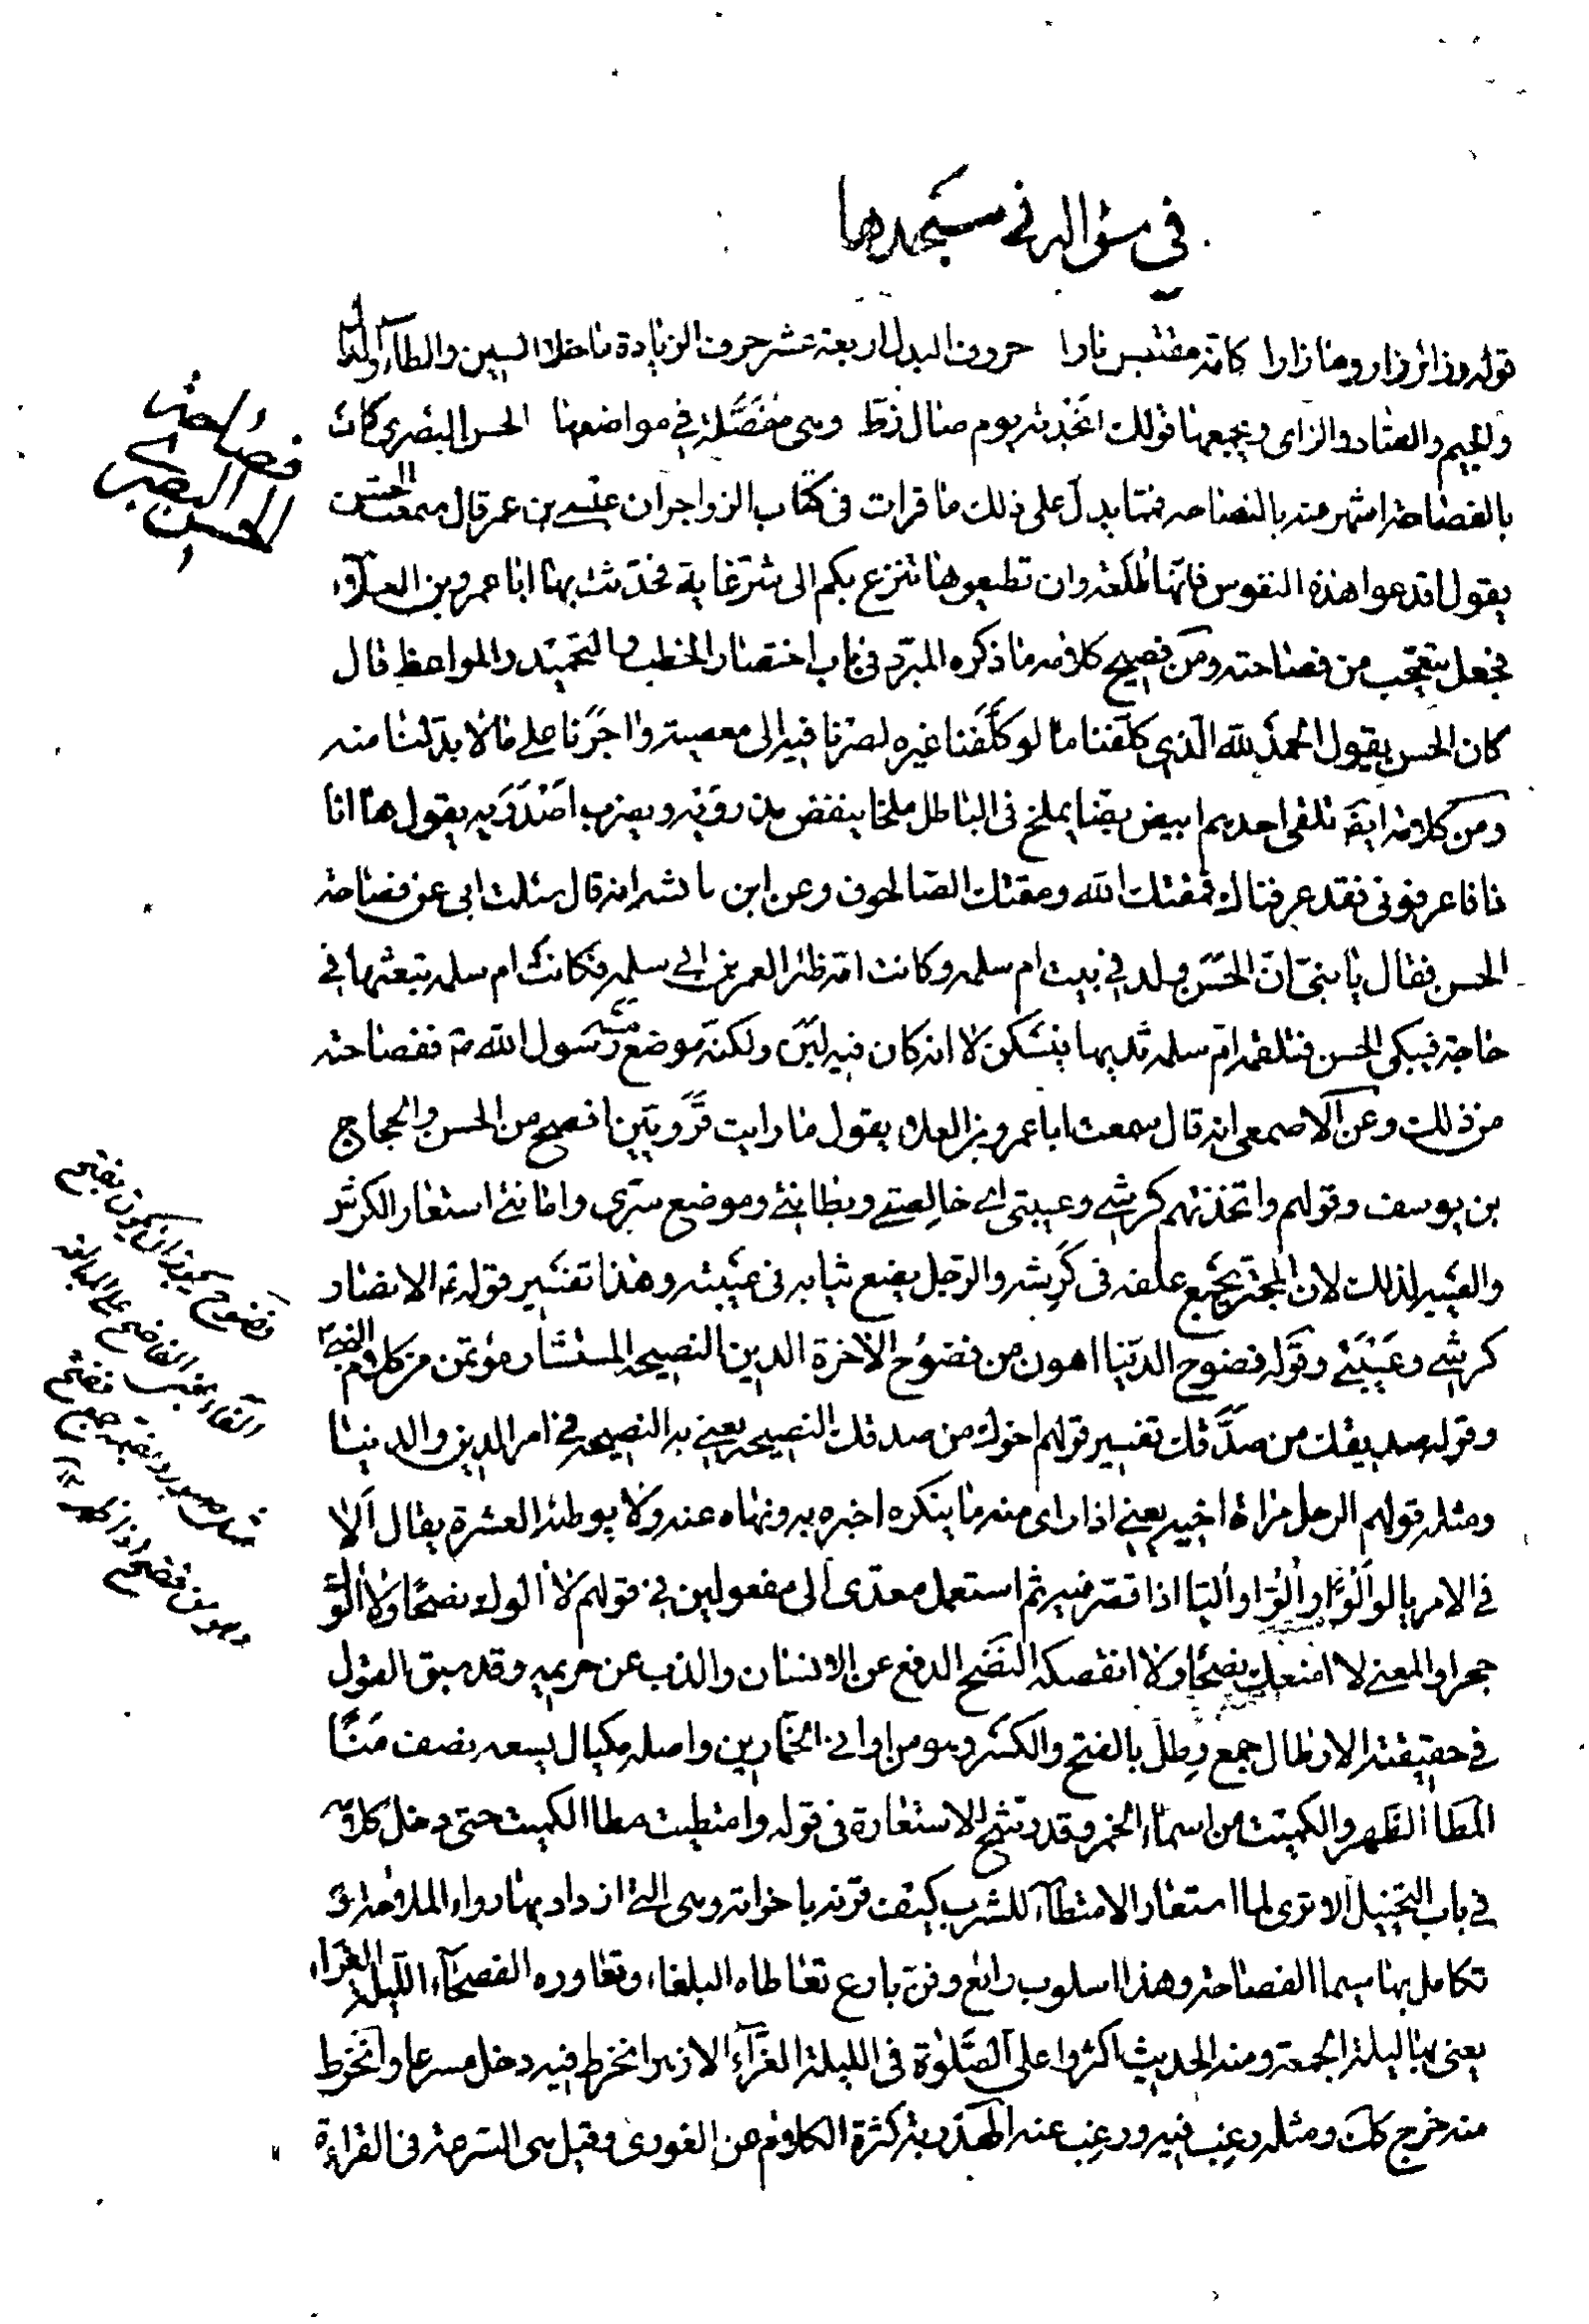 في سؤاله في سجدها
قوله وزائر زار وما زارا كانه مقتبس نارا حروف البدل اربعة عشر حروف الزيادة ما خلا السين والطاء والدال
والجيم والصاد والزاى ويجمعها قولك انجدته يوم صال زط وهى مفصلة في مواضعها الحسن البصرى كان
بالفصاحة اشهر منه بالنصاحه فمما يدل على ذلك ما قرات فى كتاب الزواجر ان عيسى بن عمر قال سمعت الحسن
يقول اقدعوا هذه النفوس فانها طلعة وان تطيعوها تنزع بكم الى شر غاية فحدثت بها ابا عمرو بن العلاء
فجعل يتعجب من فصاحته ومن فصيح كلامه ما ذكره المبرد فى باب اختصار الخطب والتحميد والمواعظ قال
كان الحسن يقول الحمد لله الذي كلفنا ما لو كلفنا غيره لصرنا فيه الى معصيته واجرنا على ما لا بد لنا منه
ومن كلامه ايضا تلقى احدهم ابيض بضا يملخ فى الباطل ملخا ينفض مذرويه ويضرب اصدريه يقول ها انا
ذا فاعرفونى فقد عرفناك فمقتك الله ومقتك الصالحون وعن ابن عائشه انه قال سئلت ابى عن فصاحة
الحسن فقال يا بنى ان الحسن ولد في بيت ام سلمه وكانت امه ظئرا لعمر بن ابي سلمه فكانت ام سلمه تبعثها في
حاجة فيبكى الحسن فتلقمه ام سلمه ثديها فيسكن لا انه كان فيه لبن ولكنه موضع مسه رسول الله ص ففصاحته
من ذلك وعن الاصمعى انه قال سمعت ابا عمرو بن العلاء يقول ما رايت قرويين افصح من الحسن والحجاج
بن يوسف وقولهم واتخذتهم كرشي وعيبتى اي خالصتي وبطانتي وموضع سرى وامانتي استعار الكرش
والعيبه لذلك لان المجتر يجمع علفه فى كرشه والرجل يضع ثيابه فى عيبته وهذا تفسير قوله ع الانصار
كرشي وعيبتي وقوله فضوح الدنيا اهون من فضوح الاخرة الدين النصيحه المستشار مؤتمن من كلام النبي
وقوله صديقك من صدقك تفسير قولهم اخوك من صدقك النصيحه يعني به النصيحه في امر الدين والدنيا
ومثله قولهم الرجل مراة اخيه يعني اذا راى منه ما ينكره اخبره به ونهاه عنه ولا يوطئه العشرة يقال الا
في الامر يالو الوا والوا واليا اذا قصر فيه ثم استعمل معدى الى مفعولين في قولهم لا الوك نصحا ولا الوك
جهرا والمعني لا امنعك نصحا ولا انقصكه النضح الدفع عن الانسان والذب عن حريمه وقد سبق القول
في حقيقته الارطال جمع رطل بالفتح والكسر وهو من اواني الخمارين واصله مكيال يسعه نصف منا
المطا الظهر والكميت من اسماء الخمر وقد رشح الاستعارة فى قوله وامتطيت مطا الكميت حتى دخل كلامه
في باب التخييل الا ترى لما استعار الامتطاء للشرب كيف قرنه باخواته وهى التي ازداد بها رواء الملاحة و
تكامل بها سيما الفصاحة وهذا اسلوب رائع وفن بارع تعاطاه البلغاء وتعاوره الفصحاء الليلة الغراء
يعنى بها ليلة الجمعة ومنه الحديث اكثروا على الصلوة فى الليلة الغراء الازهر انخرط فيه دخل مسرعا وانخرط
منه خرج كك ومثله رغب فيه ورغب عنه الهذربة كثرة الكلام عن الغورى وقيل هى السرعة فى القراءة
فصاحة
الحسن البصري
فضوح يجوز ان يكون بفتح
الفاء بمعنى الفاضح على المبالغة